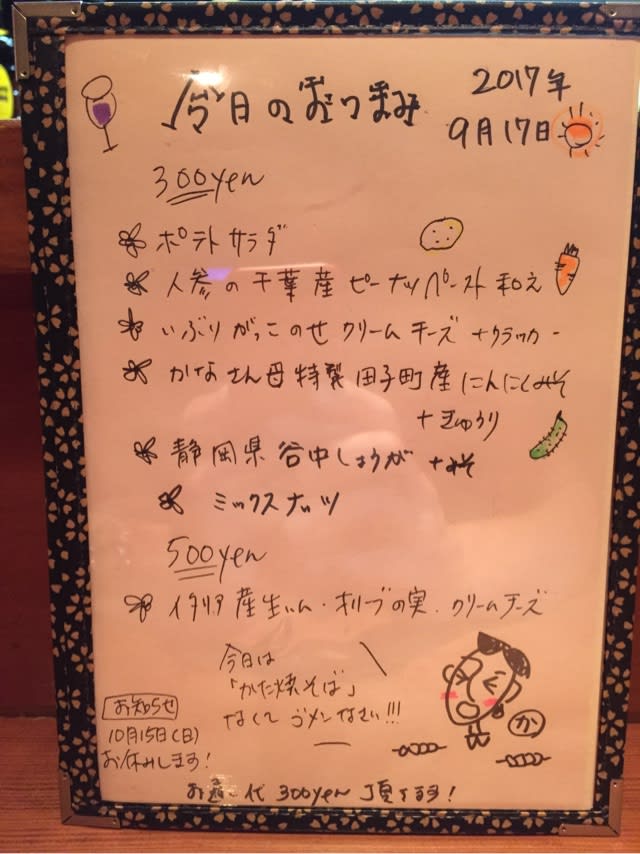 今日のおつまみ
2017年
9月17日
300yen
ポテトサラダ
人参の千葉産ピーナッツペースト和え
いぶりがっこのせクリームチーズ+クラッカー
かなさん母特製田子町産にんにくみそ
+きゅうり
静岡県谷中しょうが+みそ
ミックスナッツ
500yen
イタリア産生ハム・オリーブの実・クリームチーズ
今日は
「かた焼そば」
なくてゴメンなさい!!!
か
お知らせ
10月15日(日)
お休みします!
お通し代300yen頂きます!